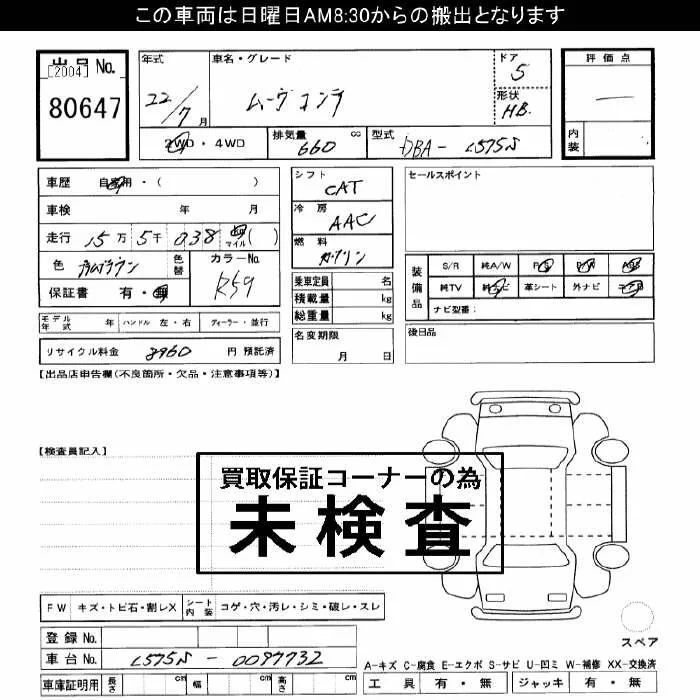 この車両は日曜日AM8:30からの搬出となります
出品 No. [2004] 80647
年式 22/7 月
車名・グレード ムーヴコンテ
ドア 5
形状 HB.
評価点 —
内装
2WD・4WD 排気量 660 cc 型式 DBA-L575S
車歴 自家用・( )
車検 年 月
走行 15万 5千 038 マイル( )
色 プラムブラウン 色替 カラーNo. R59
保証書 有・無
シフト CAT
冷房 AAC
燃料 ガソリン
乗車定員 名
積載量 kg
総重量 kg
名変期限 月 日
セールスポイント
装備品 S/R 純A/W P/S P/W A/B
純TV 純ナビ 革シート 外ナビ エアB
ナビ型番:
後日品
モデル年式 年 ハンドル 左・右 ディーラー・並行
リサイクル料金 8960 円 預託済
【出品店申告欄(不良箇所・欠品・注意事項等)】
【検査員記入】
買取保証コーナーの為
未検査
FW キズ・トビ石・割レX シート内装 コゲ・穴・汚レ・シミ・破レ・スレ
登録 No.
車台 No. L575S-0097732
車庫証明用 長さ cm 幅 cm 高さ cm
スペア
A-キズ C-腐食 E-エクボ S-サビ U-凹ミ W-補修 XX-交換済
工具 有・無 ジャッキ 有・無